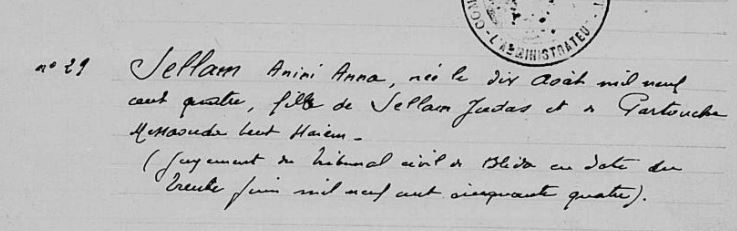 COM
L'ADMINISTRATEU
n° 29 Sellam Anini Anna, née le dix Août mil neuf
cent quatre, fille de Sellam Judas et de Partouche
Messaouda bent Haiem.
(Jugement du Tribunal civil de Blida en date du
trente Juin mil neuf cent cinquante quatre).